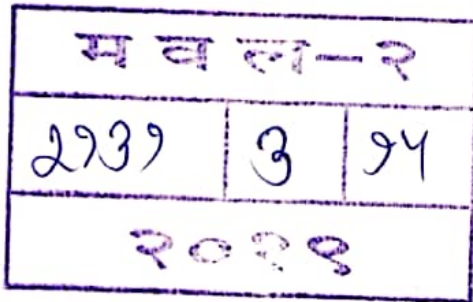 मवल-२
२१३१ ३ १५
२०१९